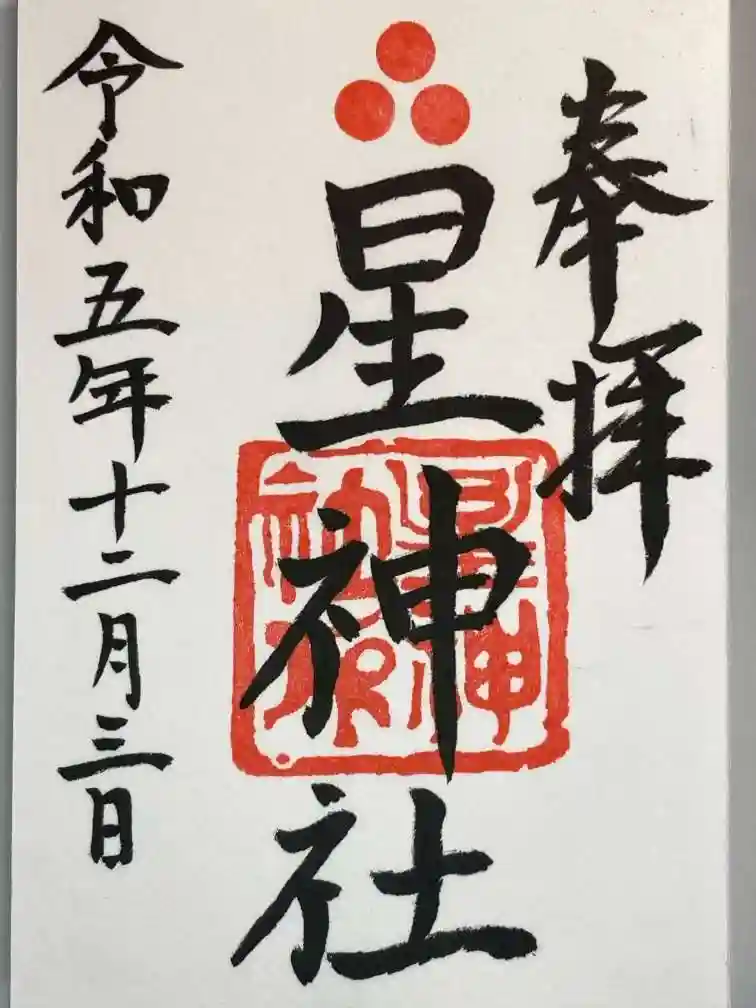 奉拝
星神社
令和五年十二月三日